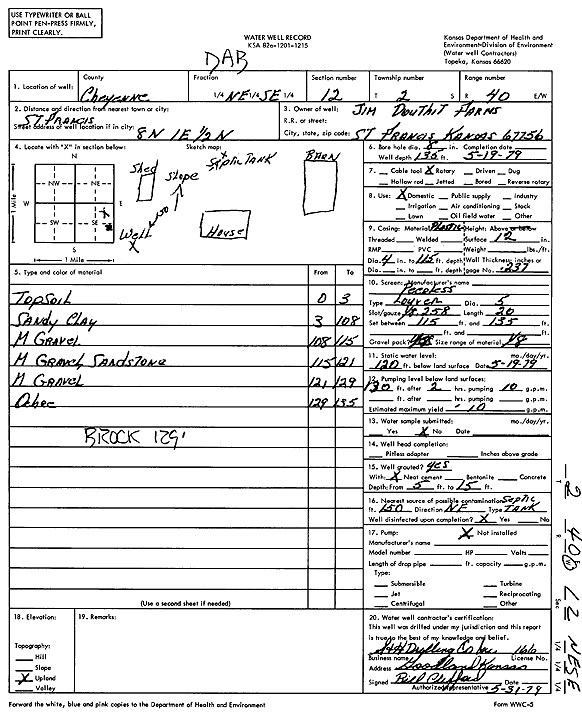 USE TYPEWRITER OR BALL
POINT PEN-PRESS FIRMLY,
PRINT CLEARLY.
WATER WELL RECORD
KSA 82a-1201-1215
Kansas Department of Health and
Environment-Division of Environment
(Water well Contractors)
Topeka, Kansas 66620
DAB
1. Location of well: County Cheyenne Fraction 1/4 NE 1/4 SE 1/4 Section number 12 Township number T 2 S Range number R 40 E/W
2. Distance and direction from nearest town or city: ST Francis
Street address of well location if in city: 8N 1E 1/2N
3. Owner of well: Jim Douthit Farms
R.R. or street:
City, state, zip code: ST Francis, Kansas 67756
4. Locate with "X" in section below:
N
NW NE
W E
SW SE
S
1 Mile
1 Mile
Sketch map:
Septic TANK
BARN
Shed
Slope
150
Well X
House
6. Bore hole dia. 8 in. Completion date
Well depth 135 ft. 5-19-79
7. Cable tool X Rotary Driven Dug
Hollow rod Jetted Bored Reverse rotary
8. Use: X Domestic Public supply Industry
Irrigation Air conditioning Stock
Lawn Oil field water Other
9. Casing: Material Plastic Height: Above or below
Threaded Welded Surface 12 in.
RMP PVC Weight lbs./ft.
Dia. 4 in. to 115 ft. depth Wall Thickness: inches or
Dia. in. to ft. depth gage No. .237
5. Type and color of material From To
TopSoil 0 3
Sandy Clay 3 108
M Gravel 108 115
M Gravel Sandstone 115 121
M Gravel 121 129
Ohee 129 135
BROCK 129'
(Use a second sheet if needed)
10. Screen: Manufacturer's name
Peerless
Type Louver Dia. 5
Slot/gauze .258 Length 20
Set between 115 ft. and 135 ft.
ft. and ft.
Gravel pack? Size range of material 1/8
11. Static water level: mo./day/yr.
120 ft. below land surface Date 5-19-79
12. Pumping level below land surfaces:
130 ft. after 2 hrs. pumping 10 g.p.m.
ft. after hrs. pumping g.p.m.
Estimated maximum yield 10 g.p.m.
13. Water sample submitted: mo./day/yr.
Yes X No Date
14. Well head completion:
Pitless adapter Inches above grade
15. Well grouted? yes
With: X Neat cement Bentonite Concrete
Depth: From 5 ft. to 15 ft.
16. Nearest source of possible contamination: Septic
ft. 150 Direction NE Type TANK
Well disinfected upon completion? X Yes No
17. Pump: X Not installed
Manufacturer's name
Model number HP Volts
Length of drop pipe ft. capacity g.p.m.
Type:
Submersible Turbine
Jet Reciprocating
Centrifugal Other
18. Elevation:
Topography:
Hill
Slope
X Upland
Valley
19. Remarks:
20. Water well contractor's certification:
This well was drilled under my jurisdiction and this report
is true to the best of my knowledge and belief.
Drilling Co Inc 166
Business name License No.
Address Goodland Kansas
Signed Bill Clifford 5-31-79
Authorized Representative
T 2 R 40 W Sec 12 NE SE 1/4 1/4 1/4
Forward the white, blue and pink copies to the Department of Health and Environment
Form WWC-5